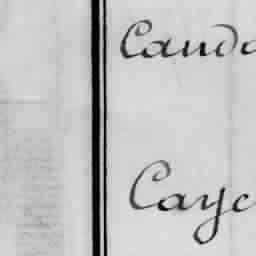 Canda
Cayc